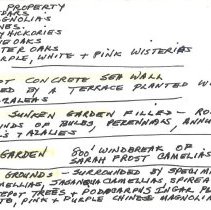 PROPERTY
CEDARS.
MAGNOLIAS
PINES.
Y HICKORIES
VE OAKS
TER OAKS
RPLE, WHITE & PINK WISTERIAS
OT CONCRETE SEA WALL
ED BY A TERRACE PLANTED W
AZALEAS
SUNKEN GARDEN FILLED - RO
NDS OF BULBS, PERENNIALS, ANNU
S & AZALIES
GARDEN 500' WINDBREAK OF
SARAH FROST CAMELIAS
GROUNDS - SURROUNDED BY SPECIM
MELLIAS, SASANQUA CAMELLIAS, SPIREA
TREES & PODACARPUS
TO, PINK & PURPLE CHINESE MAGNOLIA